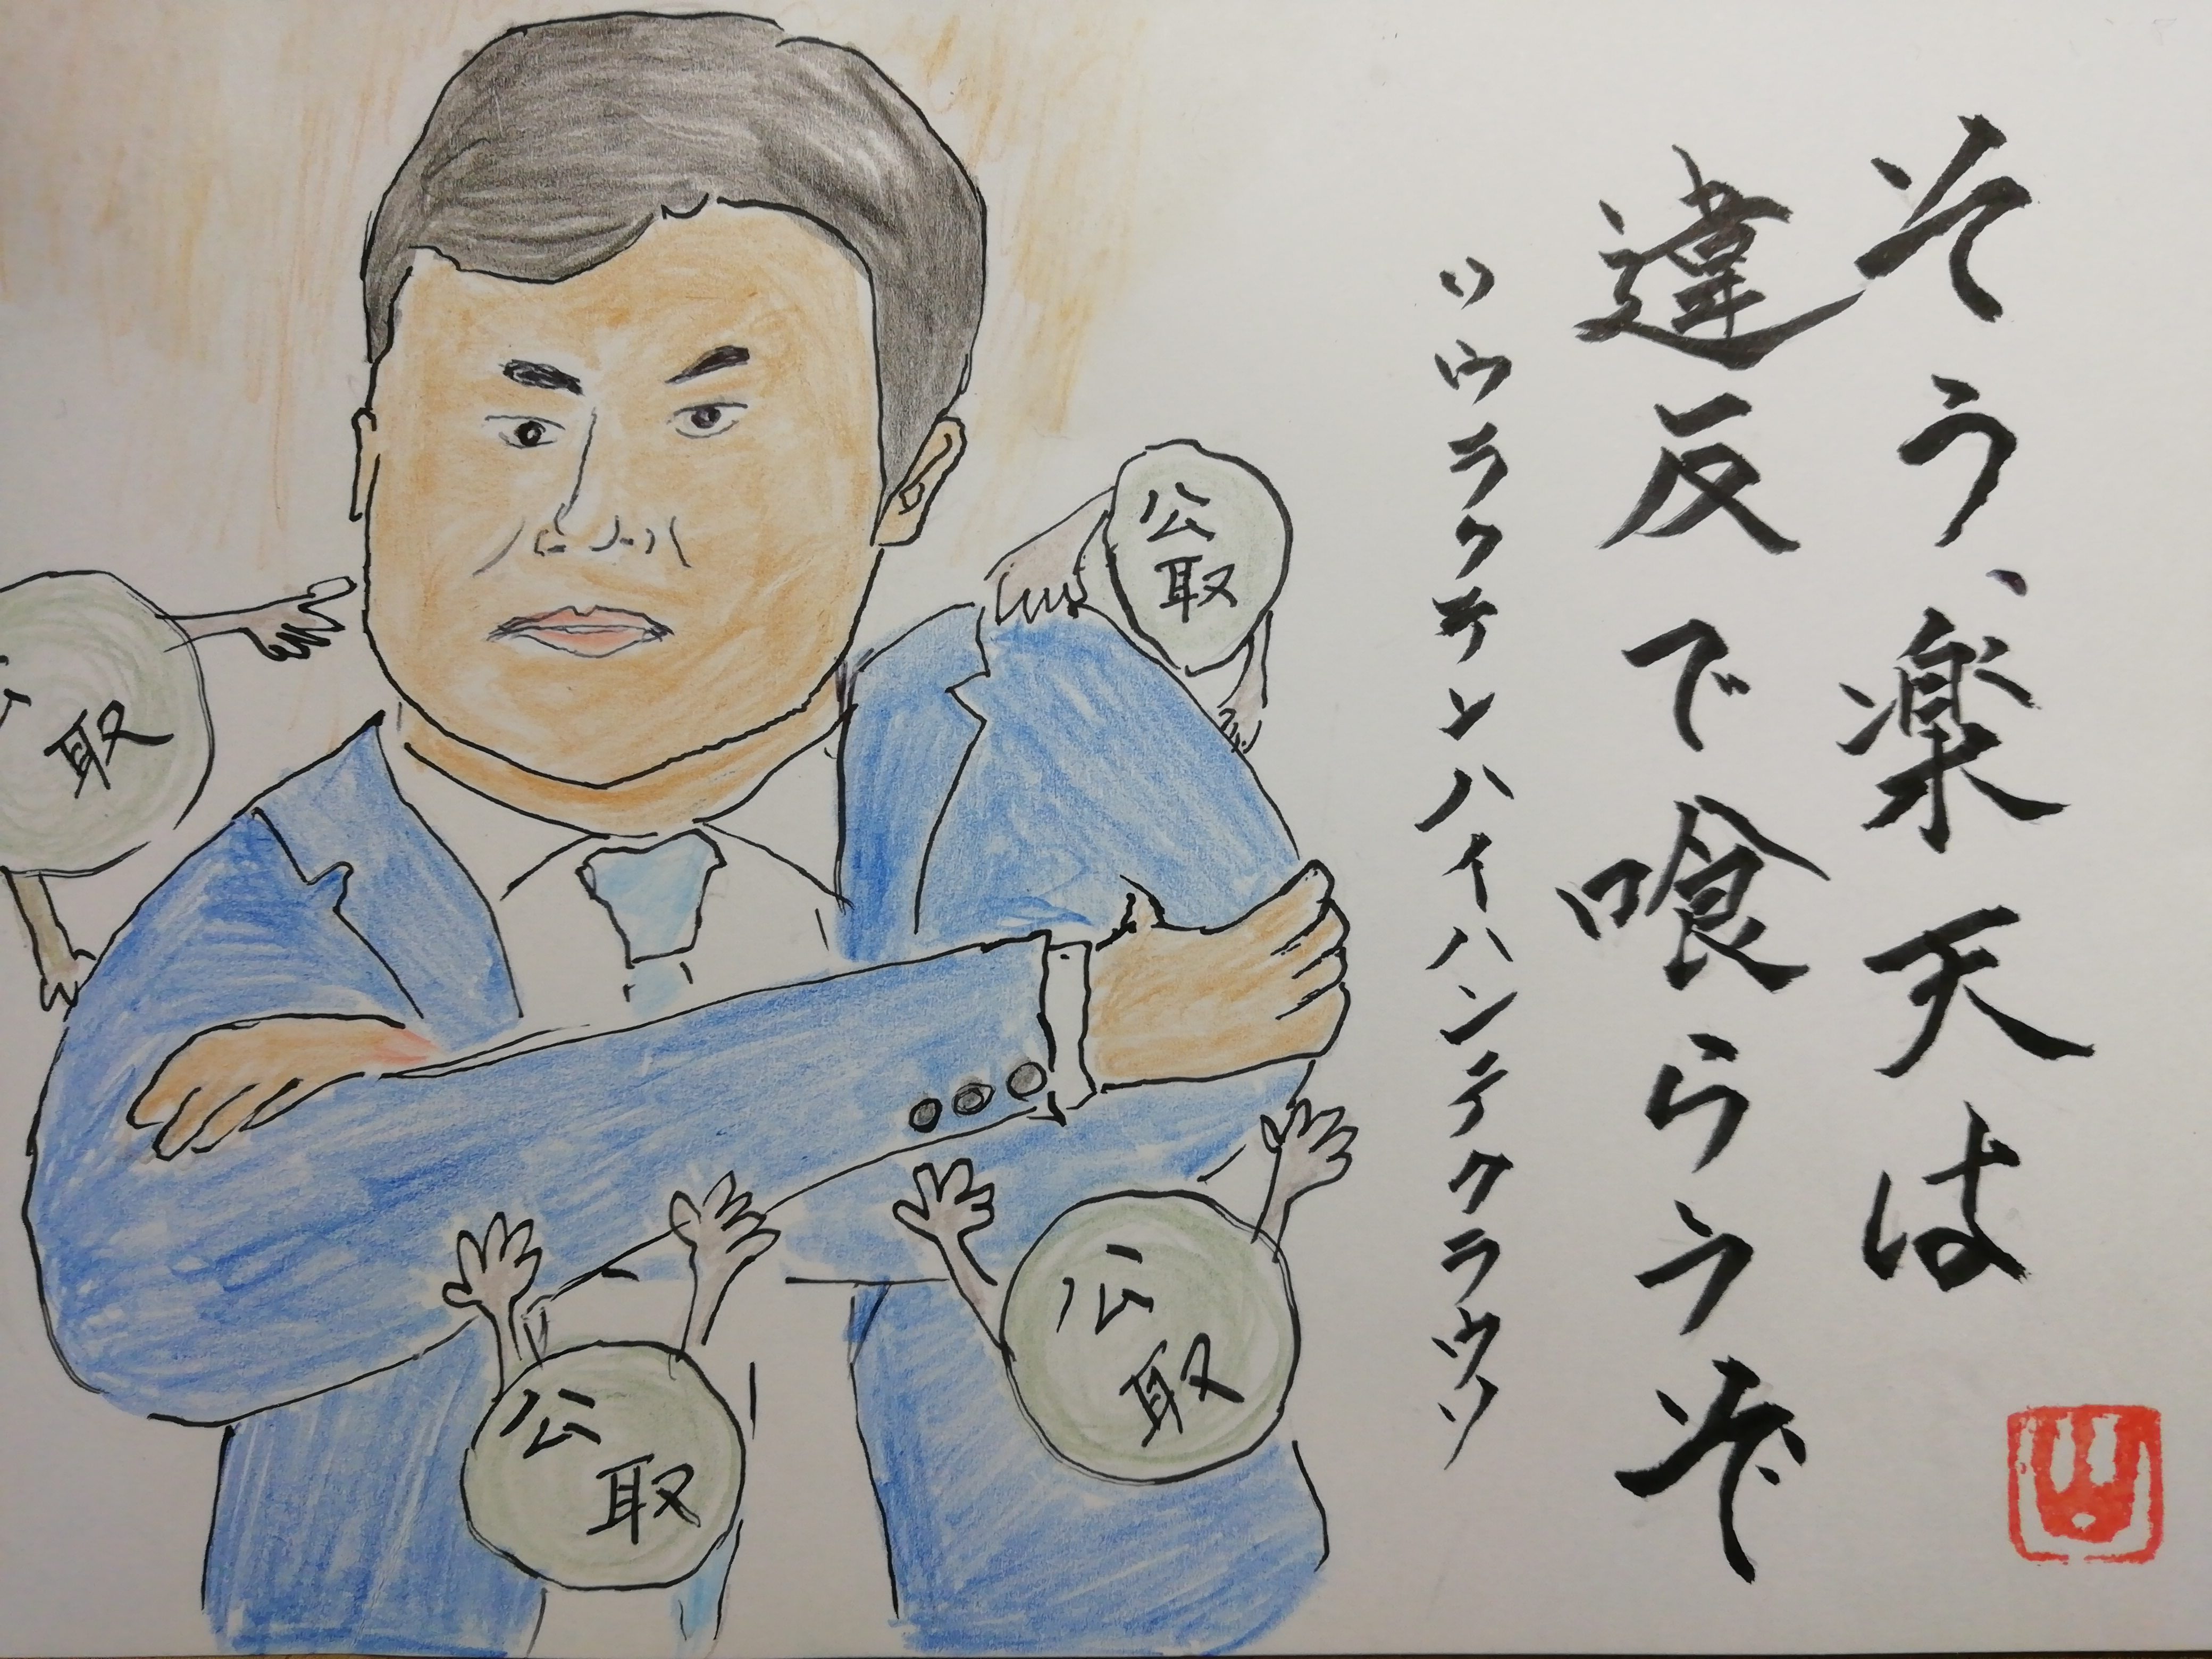 そう、楽天は
違反で喰らうぞ
ソウラクテンハイハンテクラウソ
公取
取
公取
公取